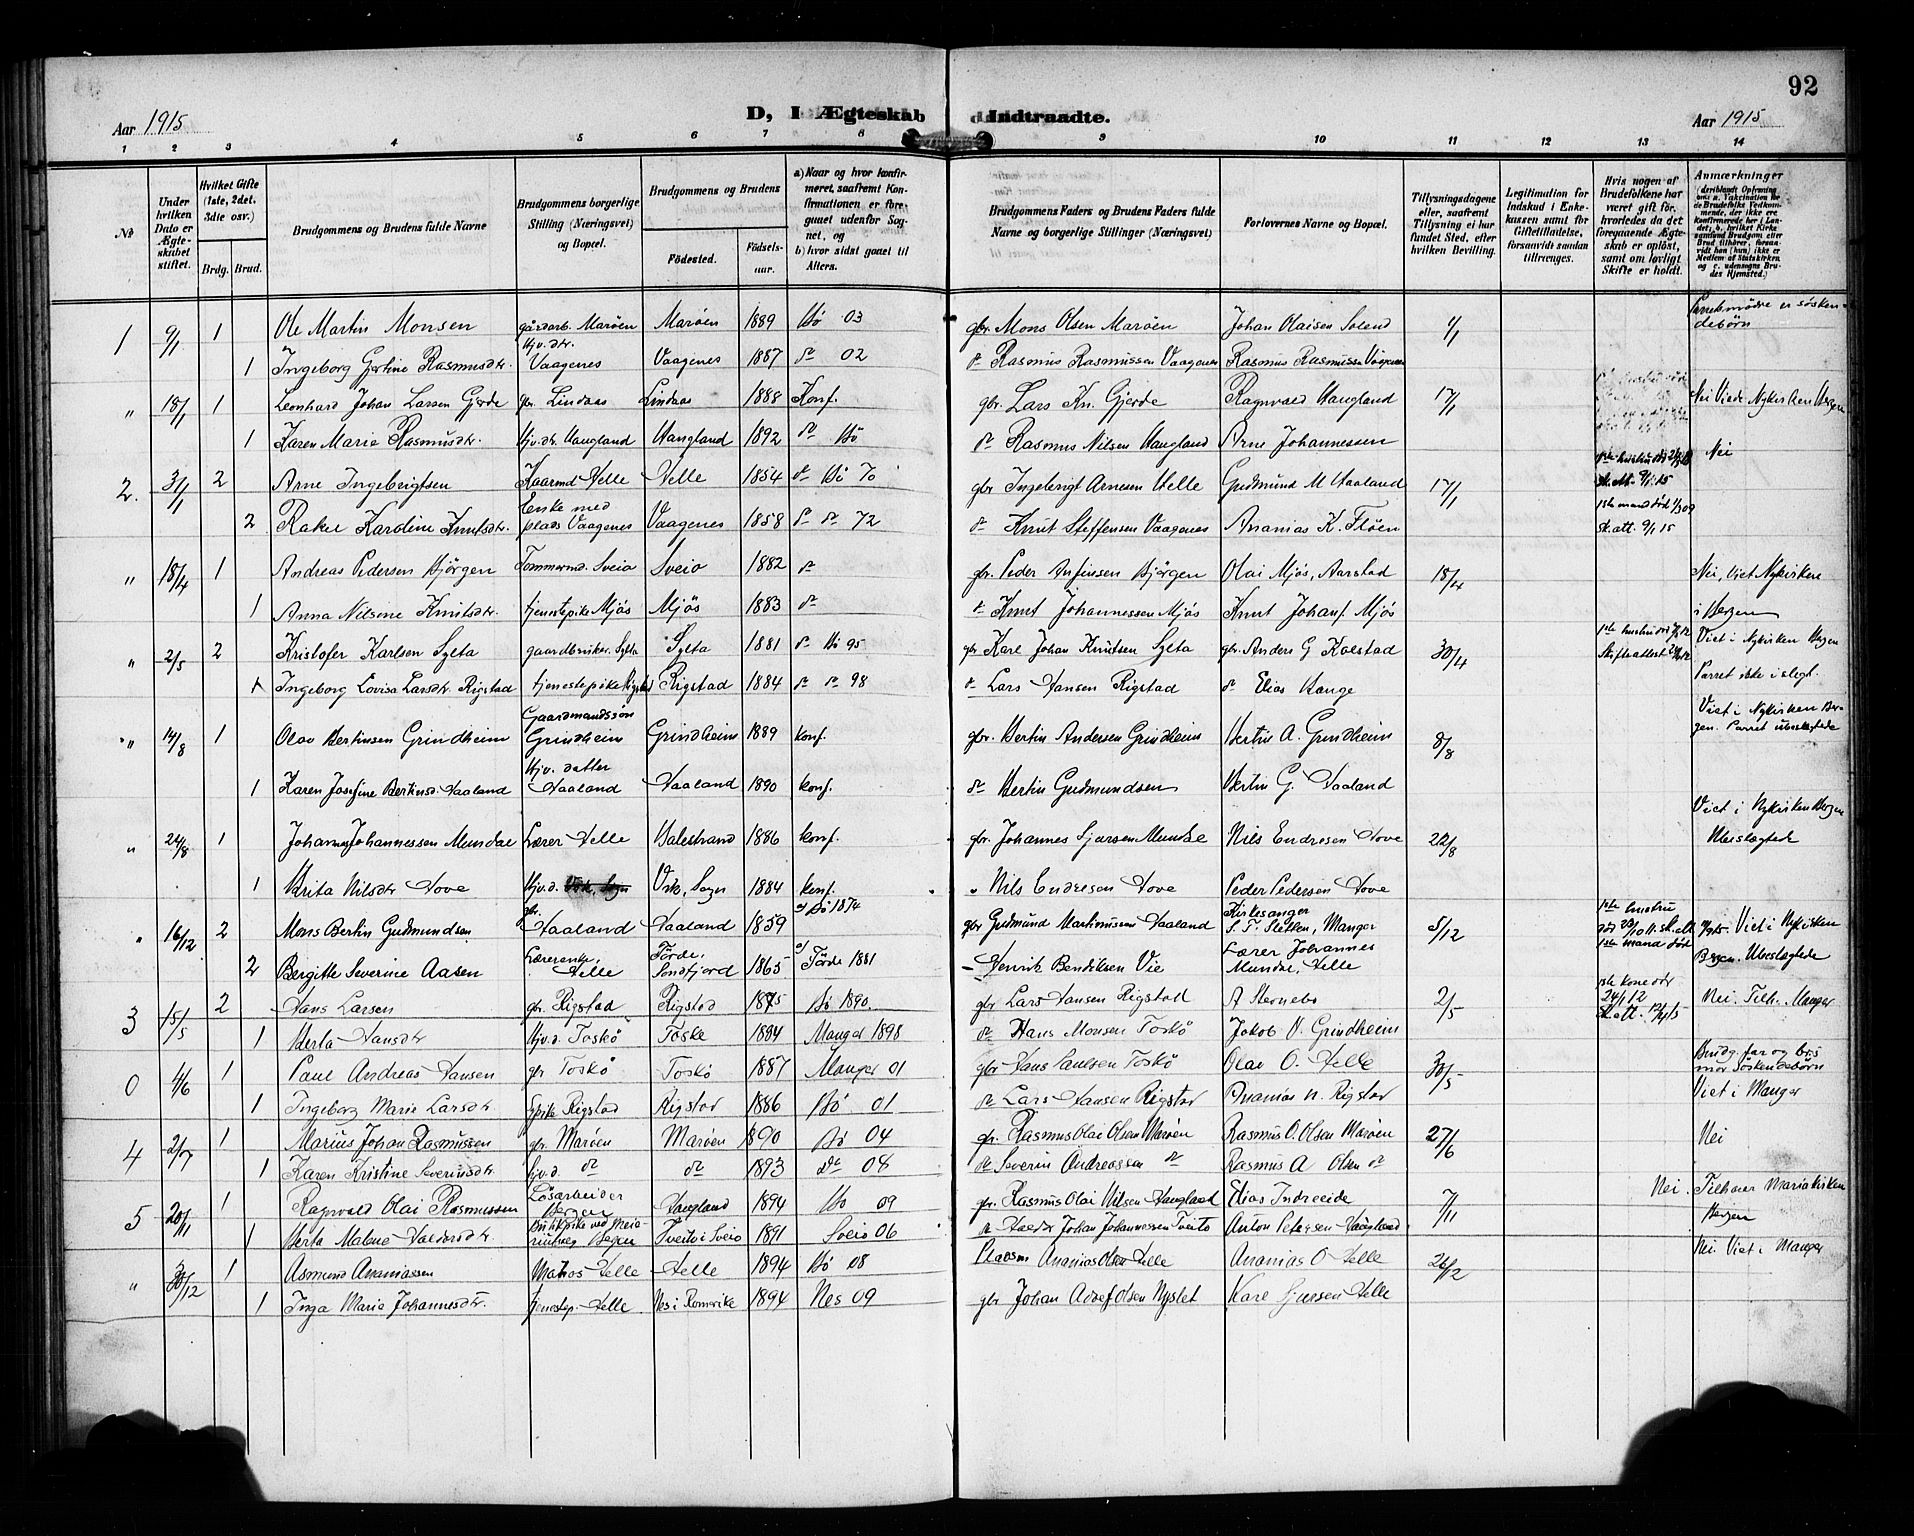 92
Aar 1915 D, I Ægteskab Indtraadte. Aar 1915
1 2 3 4 5 6 7 8 9 10 11 12 13 14
No
Under hvilken Dato er Ægteskabet stiftet.
Hvilket Gifte (1ste, 2det, 3die osv.)
Brdg. Brud.
Brudgommens og Brudens fulde Navne
Brudgommens og Brudens borgerlige Stilling (Næringsvei) og Bopæl.
Brudgommens og Brudens
Fødested. Fødselsaar.
a) Naar og hvor konfirmeret, saafremt Konfirmationen er foregaaet udenfor Sognet, og b) hvor sidst gaaet til Alters.
Brudgommens Faders og Brudens Faders fulde Navne og borgerlige Stillinger (Næringsvei)
Forlovernes Navne og Bopæl.
Tillysningsdagene eller, saafremt Tillysning ei har fundet Sted, efter hvilken Bevilling.
Legitimation for Indskud i Enkekassen samt for Giftetilladelse, forsaavidt saadan tiltrænges.
Hvis nogen af Brudefolkene har været gift før, hvorledes da det foregaaende Ægteskab er opløst, samt om lovligt Skifte er holdt.
Anmærkninger
1 9/1 1 Ole Martin Monsen gårdarb. Marøen Marøen 1889 Bø 03 gbr. Mons Olsen Marøen Johan Olaisen Solend 1/1 Parrets mødre er søskendebørn
1 Ingeborg Gjertine Rasmusdtr. Hjv. dtr. Vaagenes Vaagenes 1887 do 02 do Rasmus Rasmussen Vaagenes Rasmus Rasmussen Vaagenes
" 18/1 1 Leonhard Johan Larsen Gjerde gbr. Lindaas Lindaas 1888 Konf. gbr. Lars Kn. Gjerde Ragnvald Haugland 17/1 Nei Viede Nykirken Bergen
1 Karen Marie Rasmusdtr. Hjv. dtr. Haugland Haugland 1892 do Bø do Rasmus Nilsen Haugland Arne Johannessen
2. 31/1 2 Arne Ingebrigtsen Kaarmd Helle Helle 1854 do Bø 70 gbr Ingebrigt Arnesen Helle Gudmund M Haaland 17/1 sk. att. 9/1 15 Nei
2 Rakel Karoline Knutsdtr. Enke med plads Vaagenes Vaagenes 1858 do do 72 do Knut Steffensen Vaagenes Ananias K. Fløen 1ste mand død 1/3 09 sk. att. 9/1 15
" 18/4 1 Andreas Pedersen Bjørgen Tømmermd. Sveio Sveio 1882 do gbr. Peder Anfinsen Bjørgen Olai Mjøs, Aarstad 18/4 Nei, Viet Nykirken i Bergen
1 Anna Nilsine Knutsdtr. tjenestepike Mjøs Mjøs 1883 do do Knut Johannessen Mjøs Knut Johanf. Mjøs
" 2/5 2 Kristofer Karlsen Sylta gaardbruker. Sylta Sylta 1881 do Bø 95 gbr Karl Johan Knutsen Sylta gbr. Anders G Kolstad 30/4 Viet i Nykirken Bergen
1 Ingeborg Lovisa Larsdtr Rigstad tjenestepike Rigstad Rigstad 1884 do do 98 do Lars Hansen Rigstad do Elias Hauge Parret ikke i slegt.
" 14/8 1 Olav Bertinsen Grindheim Gaardmandssøn Grindheim Grindheim 1889 konf. gbr. Bertin Andersen Grindheim Bertin A. Grindheim 8/8 Viet i Nykirken Bergen. Parret ubeslegtede
1 Karen Josefine Bertinsd. Haaland Hjv. datter Haaland Haaland 1890 konf. do Bertin Gudmundsen Bertin G. Haaland
" 24/8 1 Johannes Johannessen Mundal Lærer Helle Balestrand 1886 konf. gbr. Johannes Sjursen Mundal Nils Endresen Hove 22/8 Viet i Nykirken Bergen Ubeslegtede
1 Brita Nilsdtr Hove Hjv. d. Vik, Sogn Vik, Sogn 1884 konf. " Nils Endresen Hove Peder Pedersen Hove
" 16/12 2 Mons Bertin Gudmundsen gbr. Haaland Haaland 1859 a) Bø 1874 gbr Gudmund Martinussen Haaland Kirkesanger S. T. Sletten, Manger 5/12 Viet i Nykirken
2 Bergitte Severine Aasen Lærerenke, Helle Førde, Søndfjord 1865 a) Førde 1881 Henrik Bendiksen Vie Lærer Johannes Mundal, Helle 1ste mand død Bergen. Ubeslegtede
3 15/5 2 Hans Larsen gbr. Rigstad Rigstad 1875 Bø 1890 gbr Lars Hansen Rigstad A Sternebo 2/5 1ste kone død 24/1 12 Sk. att. Nei. Tilh. Manger
1 Berta Hansdtr Hjv. d. Toskø Toskø 1884 Manger 1898 do Hans Monsen Toskø Jakob V. Grindheim
0 4/6 1 Paul Andreas Hansen gbr Toskø Toskø 1887 Manger 01 gbr Hans Paulsen Toskø Olai O. Helle 30/5 Brudg. far og brs mor. Søskendebørn
1 Ingeborg Marie Larsdtr Rigstad Rigstad 1886 Bø 01 do Lars Hansen Rigstad Ananias N. Rigstad Viet i Manger
4 2/7 1 Marius Johan Rasmussen gbr. Marøen Marøen 1890 Bø 04 gbr. Rasmus Olai Olsen Marøen Rasmus O. Olsen Marøen 27/6 Nei
1 Karen Kristine Severinsdtr. hjv. d. do do 1893 do 08 do Severin Andreassen do Rasmus A Olsen do
5 20/11 1 Ragnvald Olai Rasmussen Løsarbeider Bergen Haugland 1894 Bø 09 gbr. Rasmus Olai Nilsen Haugland Elias Indreeide 7/11 Nei. Tilhører Mariakirken Bergen
1 Berta Malene Haldorsdtr. Butikpike ved Meieriutsalg Bergen Tveito i Sveio 1891 Sveio 06 do Haldor Johan Johannessen Tveito Anton Petersen Haugland
" 30/12 1 Asmund Ananiassen Matros Helle Helle 1894 Bø 08 Pladsm Ananias Olsen Helle Ananias O Helle 26/12 Nei. Viet i Manger
1 Inga Marie Johannesdtr. tjenestep. Helle Nes i Romerike 1894 Nes 09 gbr Johan Adolf Olsen Nyslet Karl Sjursen Helle